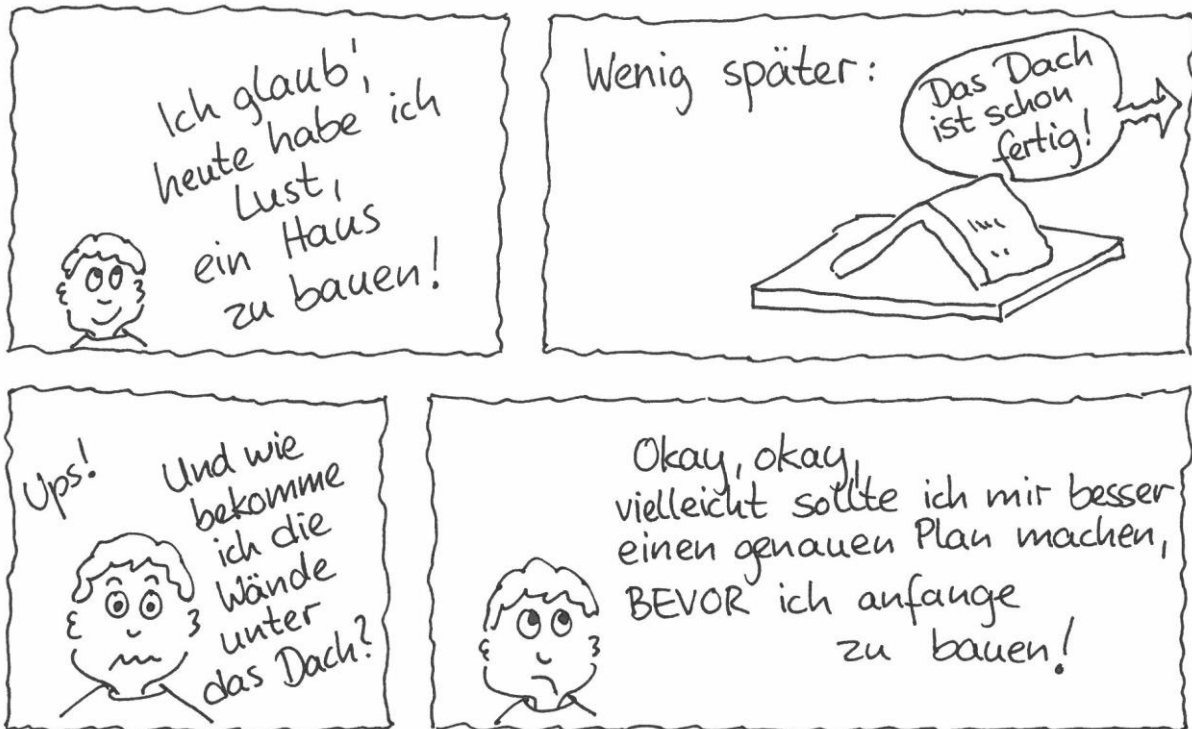 Ich glaub',
heute habe ich
Lust,
ein Haus
zu bauen!
Wenig später:
Das Dach
ist schon
fertig!
Ups!
Und wie
bekomme
ich die
Wände
unter
das Dach?
Okay, okay,
vielleicht sollte ich mir besser
einen genauen Plan machen,
BEVOR ich anfange
zu bauen!